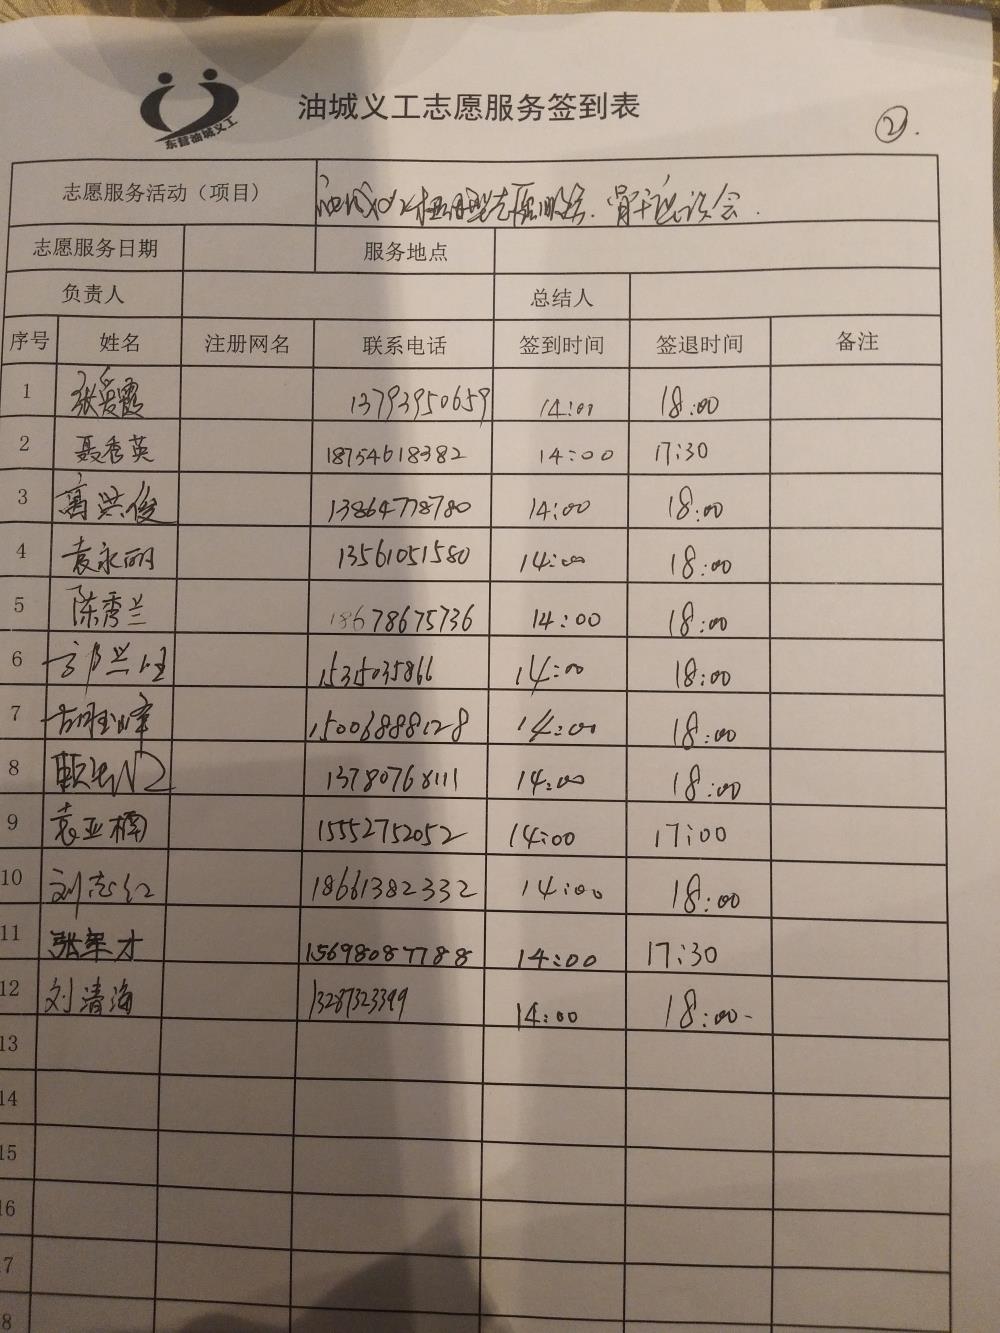 东营油城义工
油城义工志愿服务签到表
②.
志愿服务活动（项目） 油城义工 志愿服务.骨干座谈会.
志愿服务日期 服务地点
负责人 总结人
序号 姓名 注册网名 联系电话 签到时间 签退时间 备注
1 张爱霞 13793950659 14:00 18:00
2 聂秀英 18754618382 14:00 17:30
3 高洪俊 13864778780 14:00 18:00
4 袁永丽 13561051580 14:00 18:00
5 陈秀兰 18678675736 14:00 18:00
6 15315035866 14:00 18:00
7 15006888128 14:00 18:00
8 13780768111 14:00 18:00
9 袁亚楠 15552752052 14:00 17:00
10 刘志红 18661382332 14:00 18:00
11 张军才 15698087788 14:00 17:30
12 刘清海 13287323399 14:00 18:00-
13
14
15
16
7
8